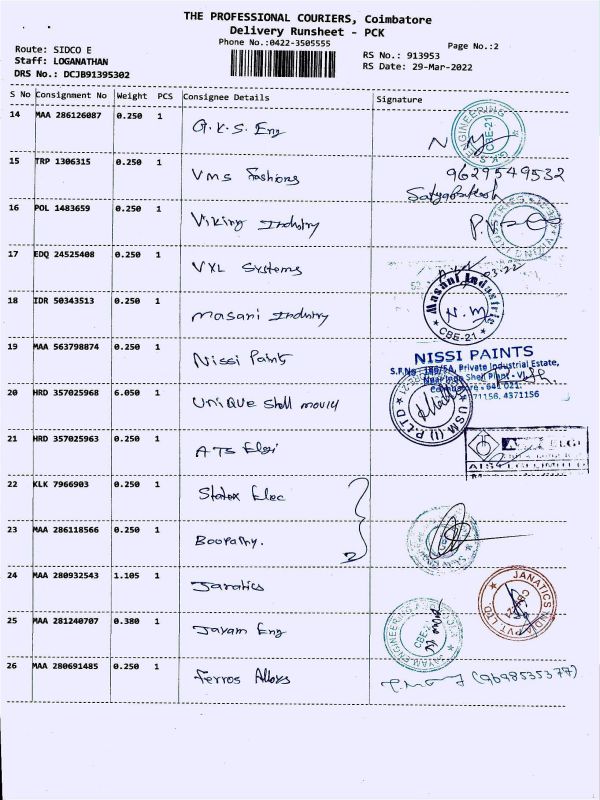 THE PROFESSIONAL COURIERS, Coimbatore
Delivery Runsheet - PCK
Phone No.:0422-3505555
Page No.:2
Route: SIDCO E
Staff: LOGANATHAN
DRS No.: DCJB91395302
RS No.: 913953
RS Date: 29-Mar-2022
S No Consignment No Weight PCS Consignee Details Signature
14 MAA 286126087 0.250 1 G.K.S. Eng
GKS ENGINEERING CBE-21
15 TRP 1306315 0.250 1 VMS Fashions 9629549532
16 POL 1483659 0.250 1 Viking Industry
17 EDQ 24525408 0.250 1 VXL Systems
18 IDR 50343513 0.250 1 Masani Industry N.M
Masani Industris CBE-21
19 MAA 563798874 0.250 1 Nissi Paints
NISSI PAINTS
Private Industrial Estate,
Coimbatore - 641 021.
71156, 4371156
20 HRD 357025968 6.050 1 UNIQUE Shell mould
USM (I) P.LTD
21 HRD 357025963 0.250 1 ATS Elgi
22 KLK 7966903 0.250 1 Statex Elec
23 MAA 286118566 0.250 1 Boopathy.
2
24 MAA 280932543 1.105 1 Janatics
JANATICS INDIA PVT. LTD.
25 MAA 281240707 0.380 1 Jayam Eng
JAYAM ENGINEERING CBE-21
26 MAA 280691485 0.250 1 Ferros Alloys (9698535377)